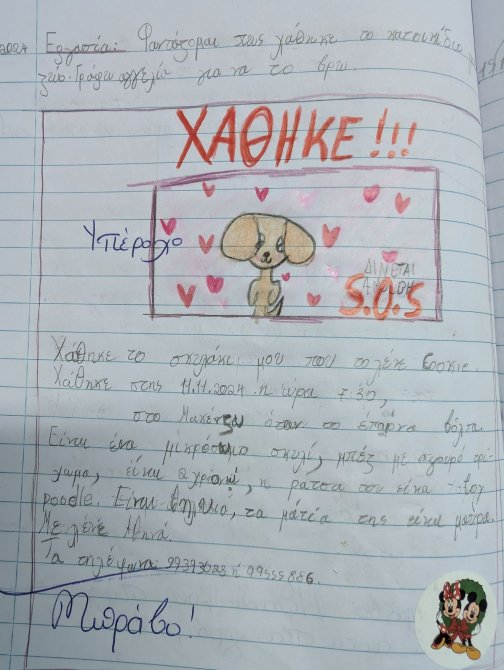 2024 Εργασία: Φαντάζομαι πως χάθηκε το κατοικίδιο μου
ζώο. Γράφω αγγελία για να το βρω.
ΧΑΘΗΚΕ!!!
Υπέροχο
ΔΙΝΕΤΑΙ
ΑΜΟΙΒΗ
S.O.S
Χάθηκε το σκυλάκι μου που το λένε Cookie.
Χάθηκε στης 11.11.2024 η ώρα 7:30,
στο Μακένζυ όταν το έπαιρνα βόλτα.
Είναι ένα μικρόσωμο σκυλί, μπεζ με σγουρό τρί-
χωμα, είναι 2 χρονών, η ράτσα του είναι Toy
poodle. Είναι θηλυκό, τα μάτια της είναι μαύρα.
Με λένε Αθηνά.
Τα τηλέφωνα: ή 99555886.
Μπράβο!